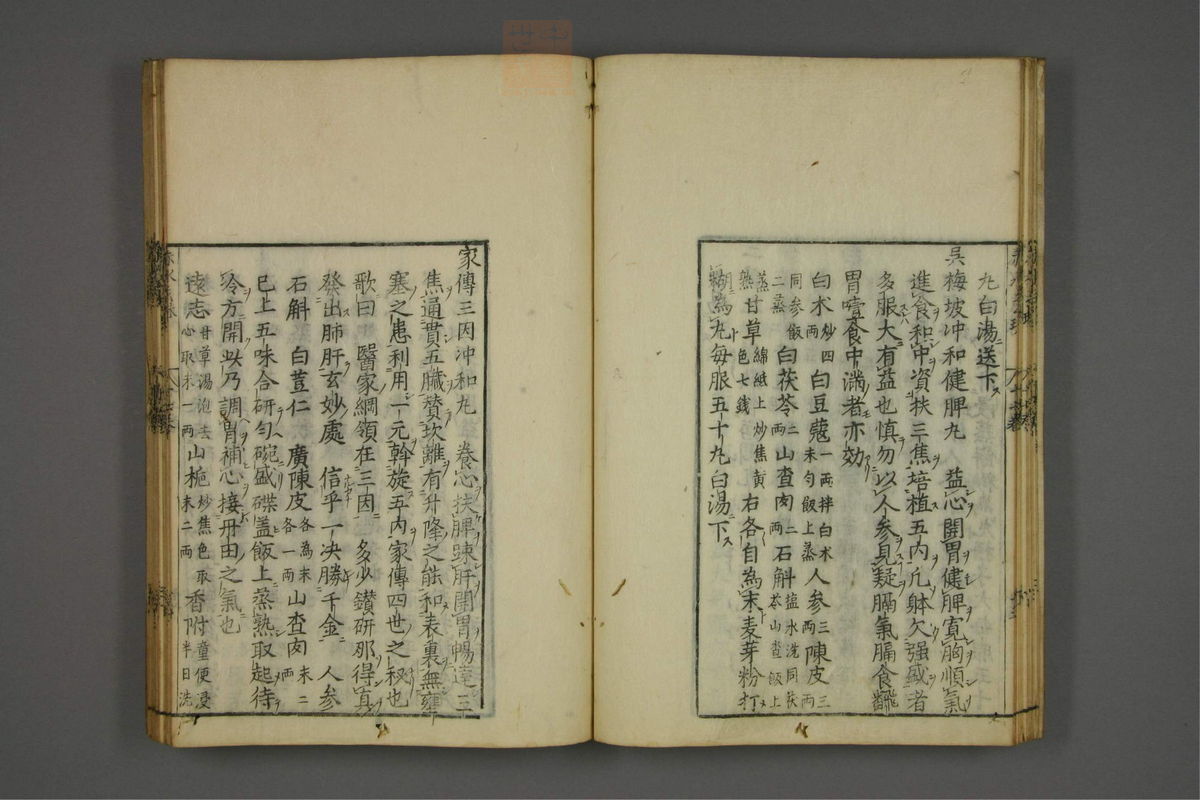 丸白湯送下ス
吳梅坡冲和健脾丸 益心開胃健脾寬胸順氣
進食和中資扶三焦培植五内凡躰欠强盛者
多服大有益也慎勿以人參見疑膈氣膈食飜
胃噎食中滿者亦効
白术炒四兩白豆蔻一兩拌白术末勻飯上蒸人參三兩陳皮三兩
同參飯二蒸白茯苓二兩山査肉二兩石斛塩水洗同茯苓山査飯上
蒸熟甘草綿紙上炒焦黄色七錢右各自為末麦芽粉打
糊為丸每服五十丸白湯下ス
家傳三因冲和丸 養心扶脾踈肝開胃暢達三
焦通貫五臟賛坎離有升降之能和表裏無壅
塞之患利用一元斡旋五内家傳四世之秘也
歌曰 醫家綱領在三因 多少鑚研那得真
發出肺肝玄妙處 信乎一决勝千金 人參
石斛 白荳仁 廣陳皮各為末各一兩山査肉末二兩
已上五味合研勻碗盛碟盖飯上蒸熟取起待
冷方開此乃調胃補心接丹田之氣也
遠志甘草湯泡去心取末一兩山梔炒焦色取末二兩香附童便浸半日洗